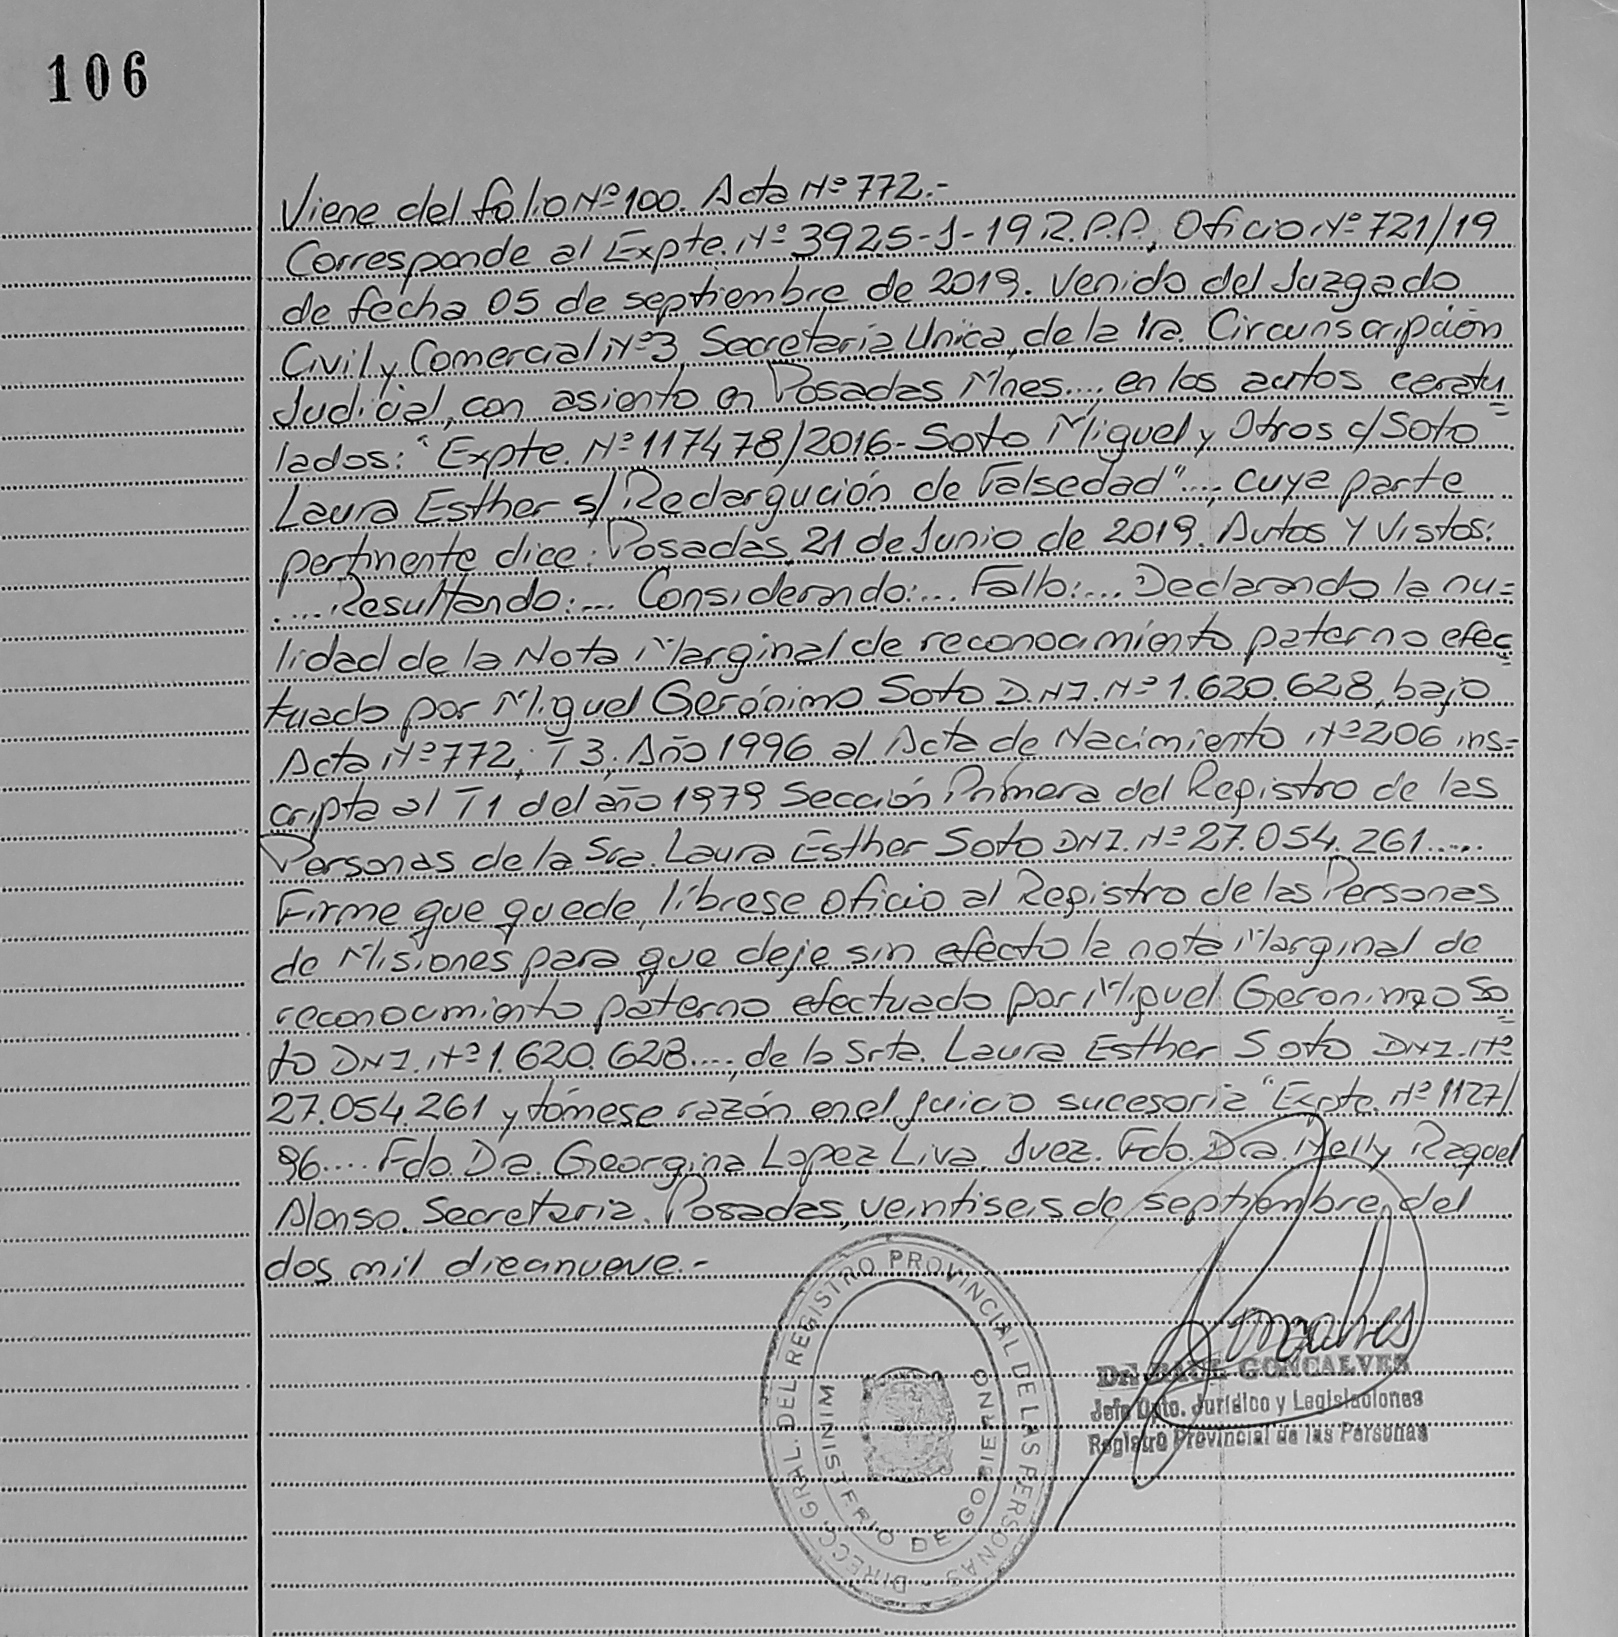 106
Viene del folio Nº 100. Acta Nº 772.-
Corresponde al Expte. Nº 3925-J-19 R.P.P, Oficio Nº 721/19
de fecha 05 de septiembre de 2019. Venido del Juzgado
Civil y Comercial Nº 3 Secretaría Unica, de la 1ra. Circunscripción
Judicial, con asiento en Posadas Mnes..., en los autos caratu=
lados: "Expte. Nº 117478/2016 - Soto Miguel y Otros c/ Soto
Laura Esther s/ Redargución de Falsedad"..., cuya parte
pertinente dice: Posadas, 21 de Junio de 2019. Autos Y Vistos:
.... Resultando:... Considerando:... Fallo:... Declarando la nu=
lidad de la Nota Marginal de reconocimiento paterno efec=
tuado por Miguel Gerónimo Soto D.N.I. Nº 1.620.628, bajo
Acta Nº 772, T 3, Año 1996 al Acta de Nacimiento Nº 206 ins=
cripta al T1 del año 1979 Sección Primera del Registro de las
Personas de la Sra. Laura Esther Soto DNI. Nº 27.054.261.....
Firme que quede, líbrese oficio al Registro de las Personas
de Misiones para que deje sin efecto la nota Marginal de
reconocimiento paterno efectuado por Miguel Geronimo So=
to DNI. Nº 1.620.628...., de la Srta. Laura Esther Soto DNI. Nº
27.054.261 y tómese razón en el juicio sucesorio "Expte. Nº 1127/
96.... Fdo. Dra. Georgina Lopez Liva. Juez. Fdo. Dra. Nelly Raquel
Alonso. Secretaria. Posadas, veintiseis de septiembre, del
dos mil diecinueve.-
DIRECC. GRAL. DEL REGISTRO PROVINCIAL DE LAS PERSONAS
MINISTERIO DE GOBIERNO
Goncalves
DR. RAUL GONCALVES
Jefe Dpto. Jurídico y Legislaciones
Registro Provincial de las Personas